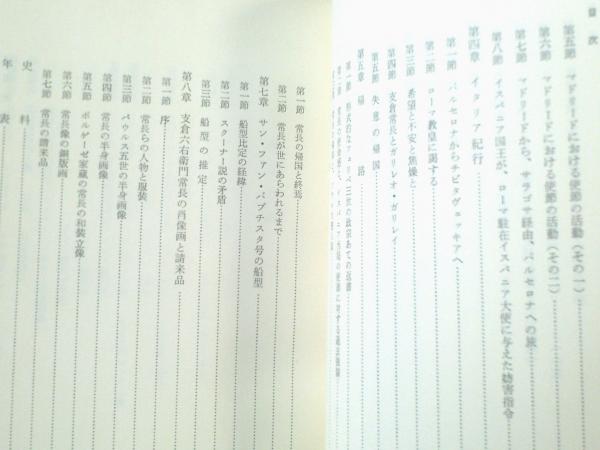 目次
第五節 マドリードにおける使節の活動(その一)
第六節 マドリードにおける使節の活動(その二)
第七節 マドリードから、サラゴサ経由、バルセロナへの旅
第八節 イスパニア国王が、ローマ駐在イスパニア大使に与えた妨害指令
第四章 イタリア紀行
第一節 バルセロナからチビタヴェッキアへ
第二節 ローマ教皇に謁する
第三節 希望と不安と焦燥と
第四節 支倉常長とガリレオ・ガリレイ
第五節 失意の帰国
第五章 帰路
第一節
第二節
第一節 常長の帰国と終焉
第二節 常長が世にあらわれるまで
第七章 サン・ファン・バプチスタ号の船型
第一節 船型比定の経緯
第二節 スクーナー説の矛盾
第三節 船型の推定
第八章 支倉六右衛門常長の肖像画と請来品
第一節 序
第二節 常長らの人物と服装
第三節 パウルス五世の半身画像
第四節 常長の半身画像
第五節 ボルゲーゼ家蔵の常長の和装立像
第六節 常長像の銅版画
第七節 常長の請来品
史料
年表